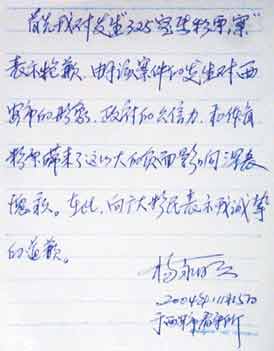 首先我对发生“3.25宝马彩票案”
表示抱歉，由于该案件的发生对西
安市的形象，政府的公信力，和体育
彩票带来了这么大的负面影响深表
愧疚。在此，向广大彩民表示我诚挚
的道歉。
杨永明
2004年11月15日
于西安市看守所